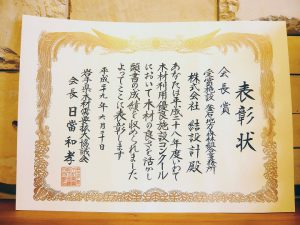 表彰状
会長賞
受賞施設 釜石地方森林組合事務所
株式会社 結設計殿
あなたは平成二十八年度いわて
木材利用優良施設コンクール
において木材の良さを活かし
顕著の成績を収められました
よってここに表彰します
平成二十九年六月二十日
岩手県木材需要拡大協議会
会長 日當和孝